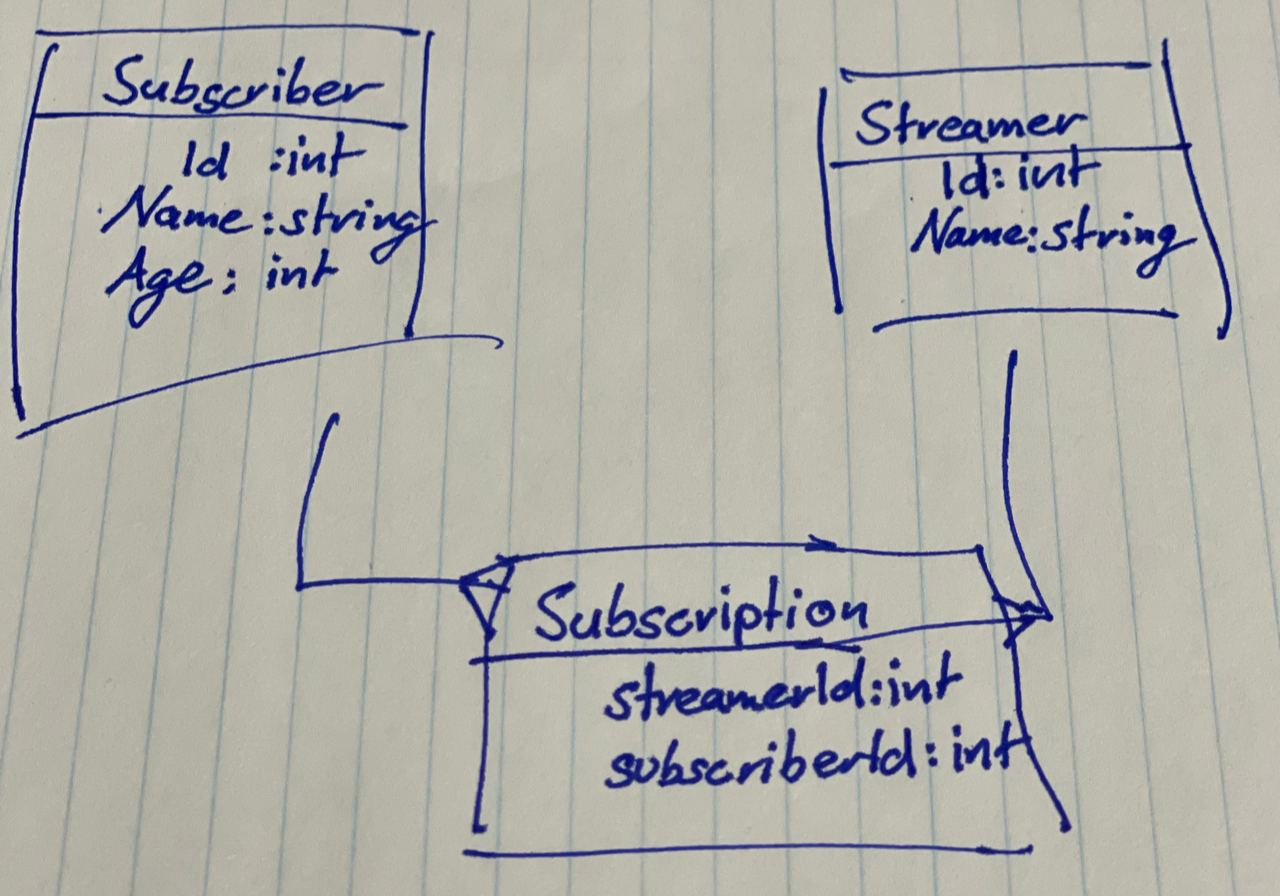 Subscriber
Id :int
Name:string
Age: int
Streamer
Id: int
Name:string
Subscription
streamerId:int
subscriberId:int